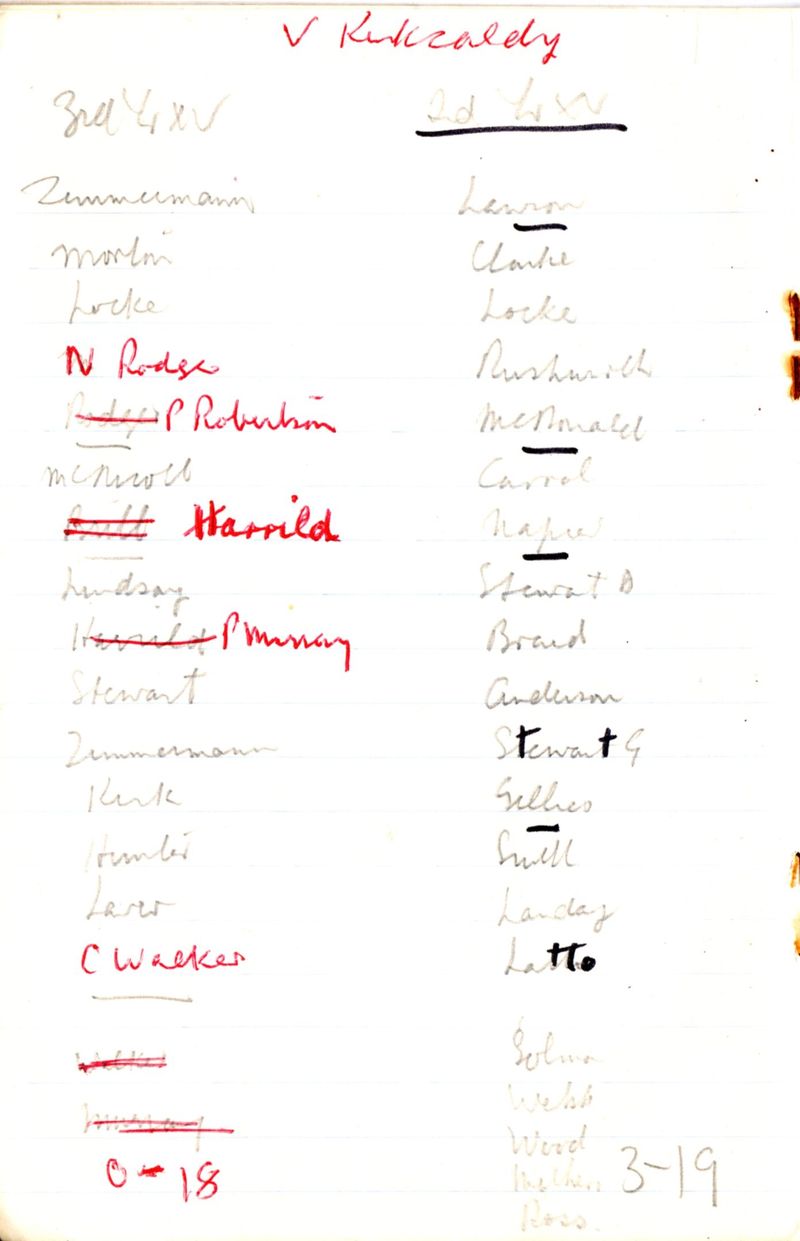 V Kirkcaldy
3rd Yr XV
Zimmermann
Morton
Locke
N Rodger
Rodger P Robertson
McNicoll
Harrild
Lindsay
Harrild P Murray
Stewart
Zimmermann
Kirk
Hunter
Laver
C Walker
Walker
Murray
0-18
2nd Yr XV
Lawson
Clarke
Locke
Rushworth
McDonald
Carrol
Napier
Stewart D
Braid
Anderson
Stewart G
Gillies
Snell
Landay
Latto
Webb
Wood
Ross
3-19